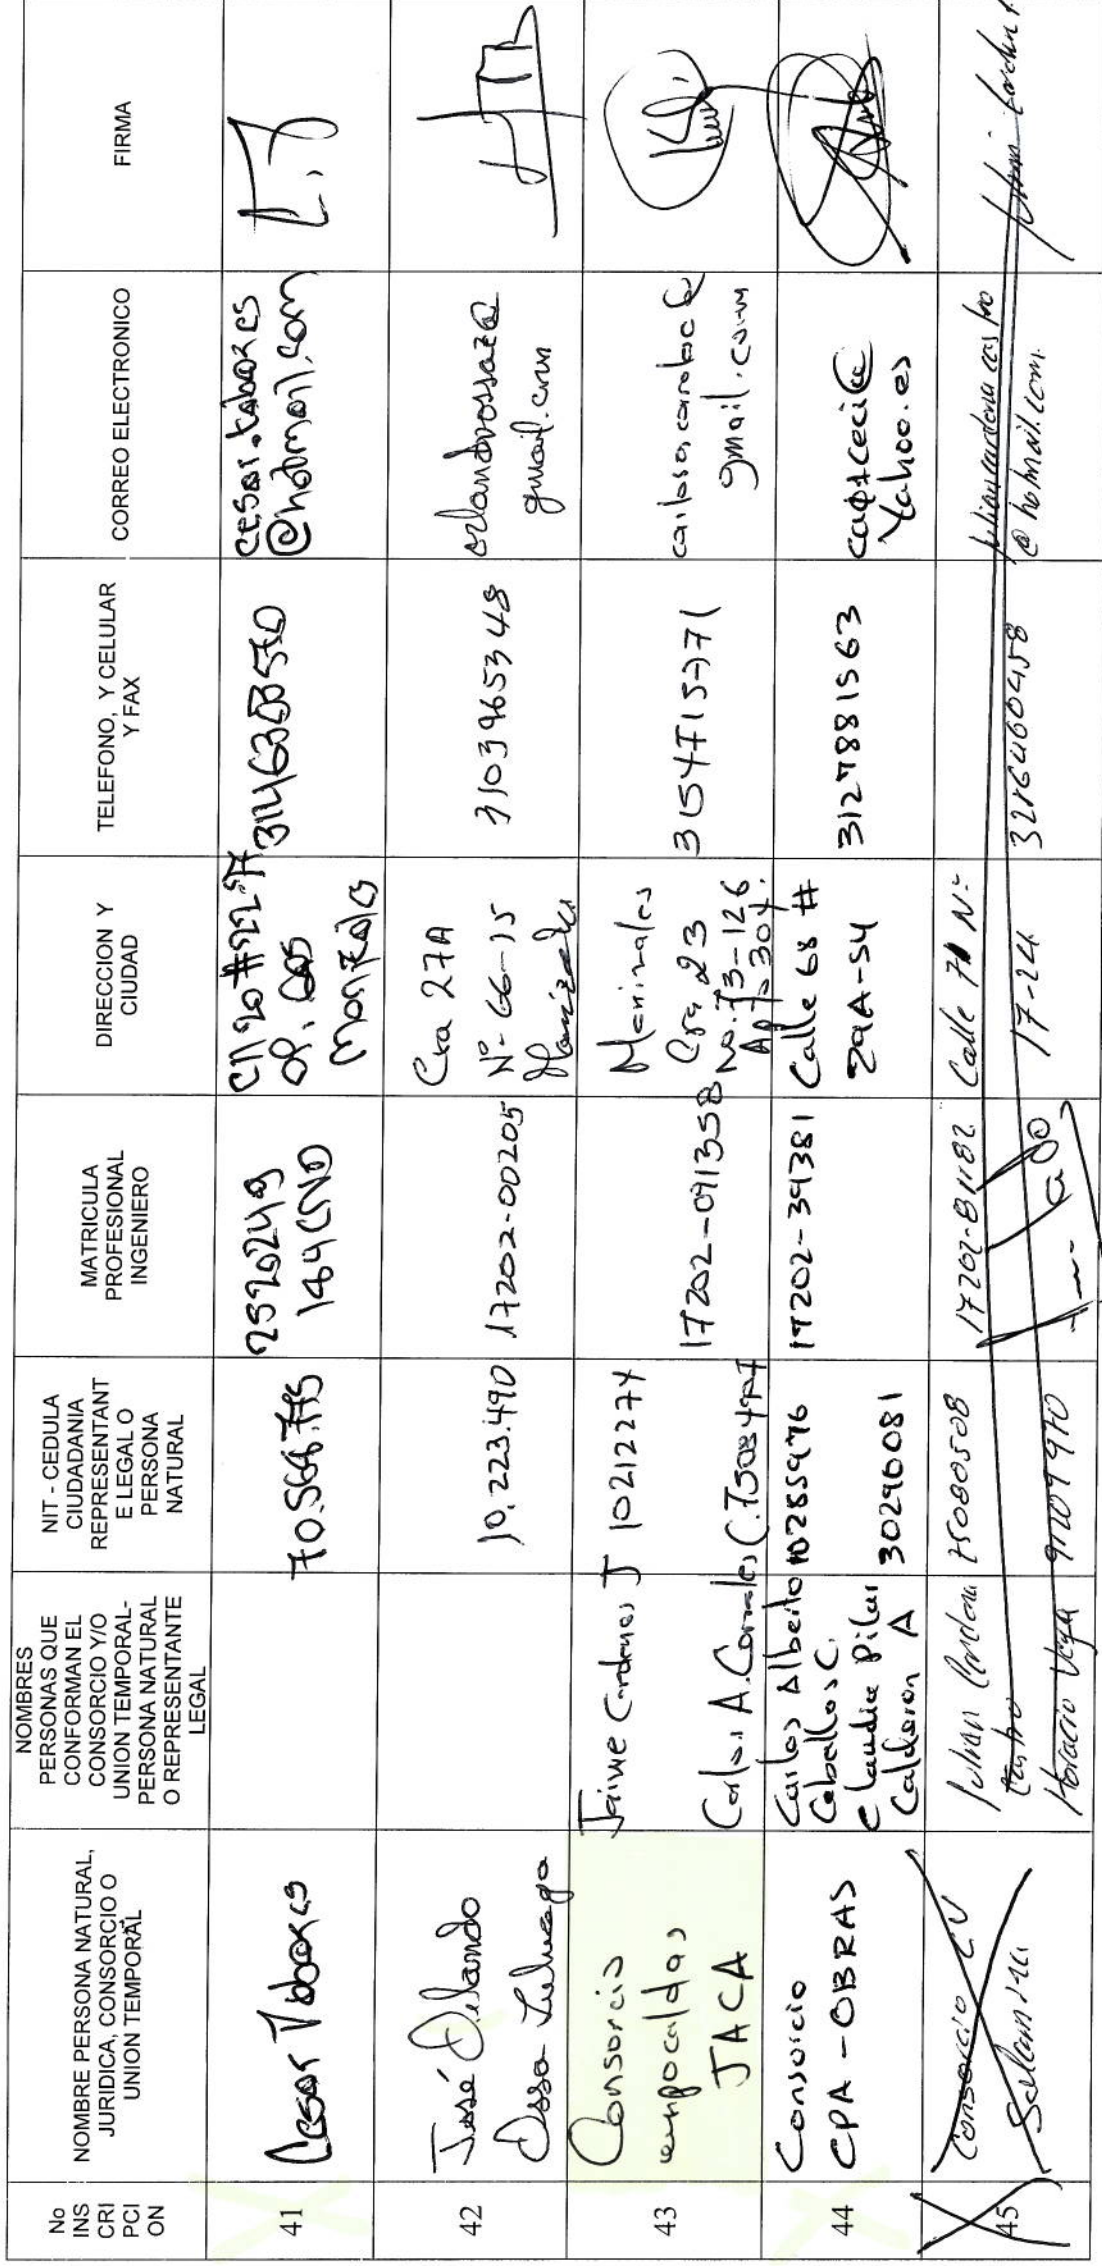 No
INS
CRI
PCI
ON
NOMBRE PERSONA NATURAL,
JURIDICA, CONSORCIO O
UNION TEMPORAL
NOMBRES
PERSONAS QUE
CONFORMAN EL
CONSORCIO Y/O
UNION TEMPORAL-
PERSONA NATURAL
O REPRESENTANTE
LEGAL
NIT - CEDULA
CIUDADANIA
REPRESENTANT
E LEGAL O
PERSONA
NATURAL
MATRICULA
PROFESIONAL
INGENIERO
DIRECCION Y
CIUDAD
TELEFONO, Y CELULAR
Y FAX
CORREO ELECTRONICO
FIRMA
41
Cesar Tabares
cesar.tabares
@hotmail.com
42
José Orlando
Ossa
10.223.490
17202-00205
Cra 27A
Nº 66-15
Manizales
3103965348
orlandoossaz@
gmail.com
43
Consorcio
empocaldas
JACA
Jaime Cardenas J
Carlos A. Corrales C.
10212274
17202-091358
Manizales
Cra 23
No. 73-126
Ap. 304.
3154715771
gmail.com
44
Consorcio
CPA-OBRAS
Carlos Alberto
Ceballos C.
Claudia Pilar
Calderon A
10285976
30290081
17202-39381
Calle 68 #
29A-54
3127881563
Yahoo.es
45
Consorcio CV
Salamina
Julian Cardona
Castro
Horacio Vega
75080508
17202-81182
Calle 71 Nº
17-24
3216460458
juliancardonacastro
@hotmail.com